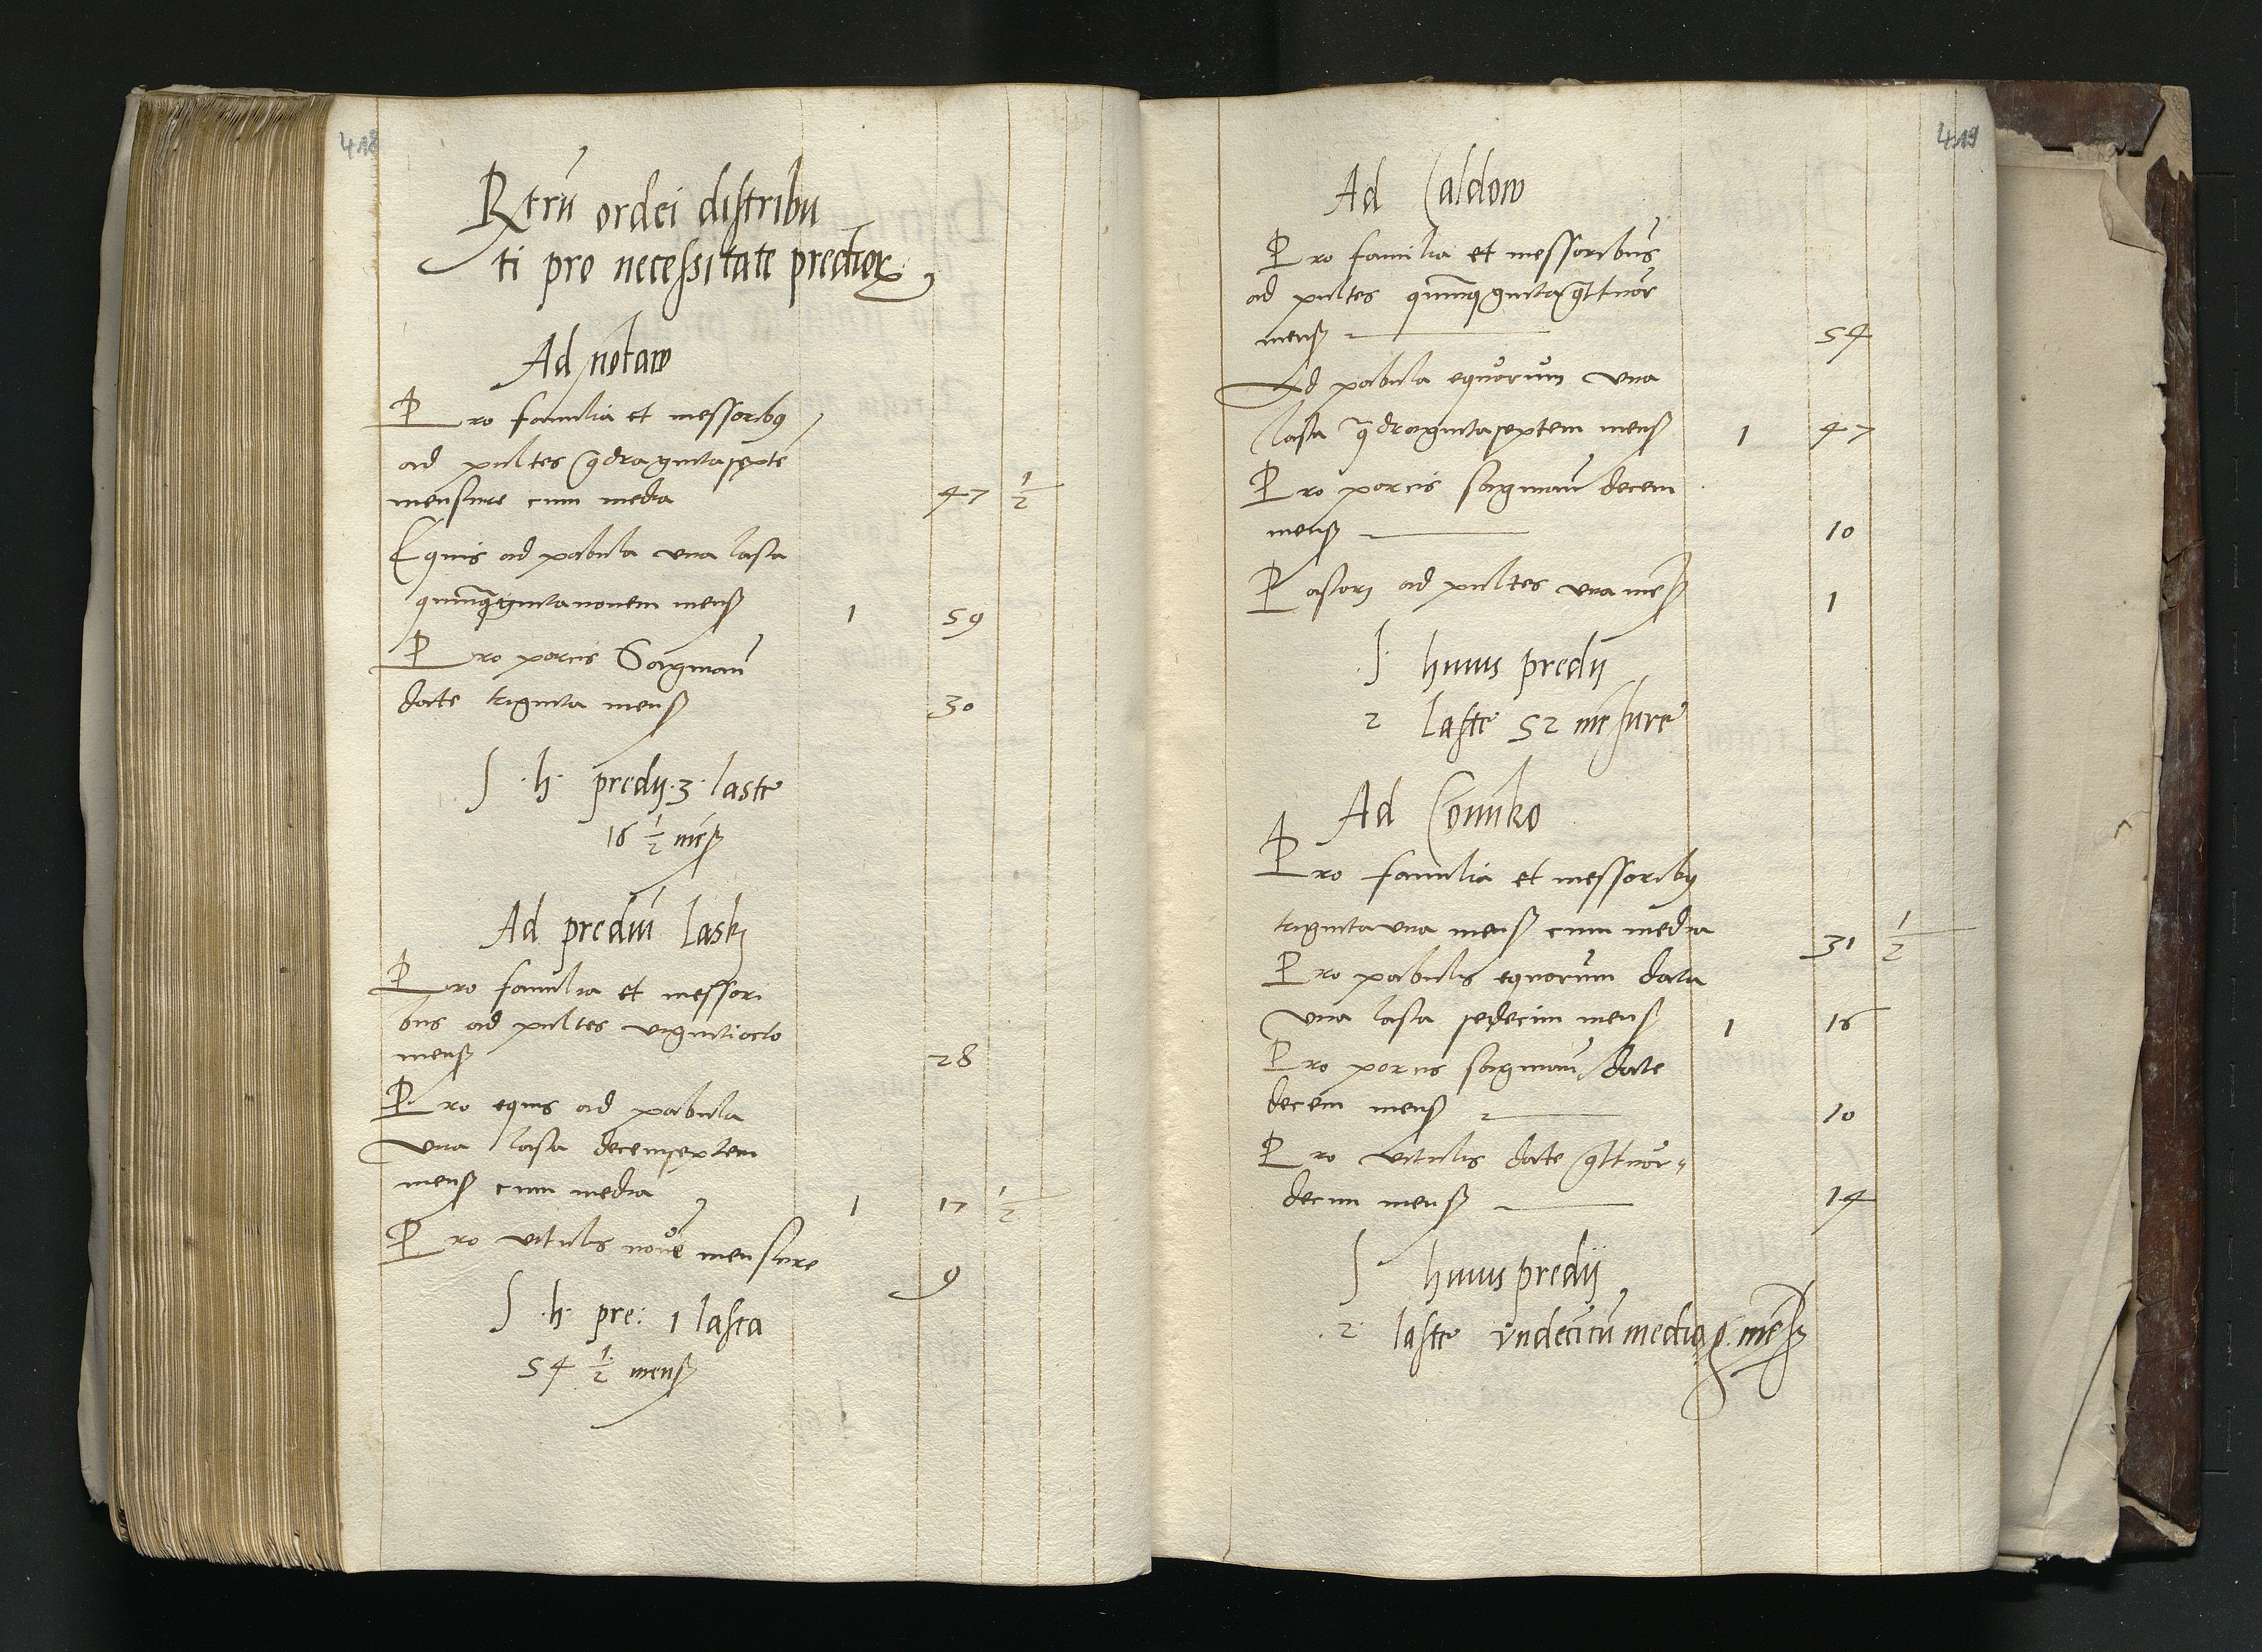 418
Rtrū ordei distribu
ti pro necessitate predior
Ad notaw
Pro familia et messoribꝰ
ad pultes qdragintaseptē
mensure cum media 47 1/2
Equis ad pabula una lasta
quinqgintanouem mens 1 59
Pro porcis Saginaū
date triginta mens 30
S .h. predij .3. laste
16 1/2 mēs
Ad prediū lasky
Pro familia et messori
bus ad pultes vigintiocto
mens 28
Pro equis ad pabula
una lasta decemseptem
mens cum media 1 17 1/2
Pro vitulis nouē mensure 9
S .h. pre: 1 lasta
54 1/2 mens
419
Ad Caldow
Pro familia et messoribus
ad pultes quinqgintaqttuor
mens 54
Ad pabula equorum una
lasta qdragintaseptem mens 1 47
Pro porcis saginaū decem
mens 10
Pastori ad pultes una mēs 1
S huius predij
2 laste 52 mēsure
Ad Connko
Pro familia et messoribꝰ
trigintauna mens cum media 31 1/2
Pro pabulis equorum data
una lasta sedecim mens 1 16
Pro porcis saginaū date
decem mens 10
Pro vitulis date qttuor
decim mens 14
S huius predij
.2. laste undeci cū media mēs